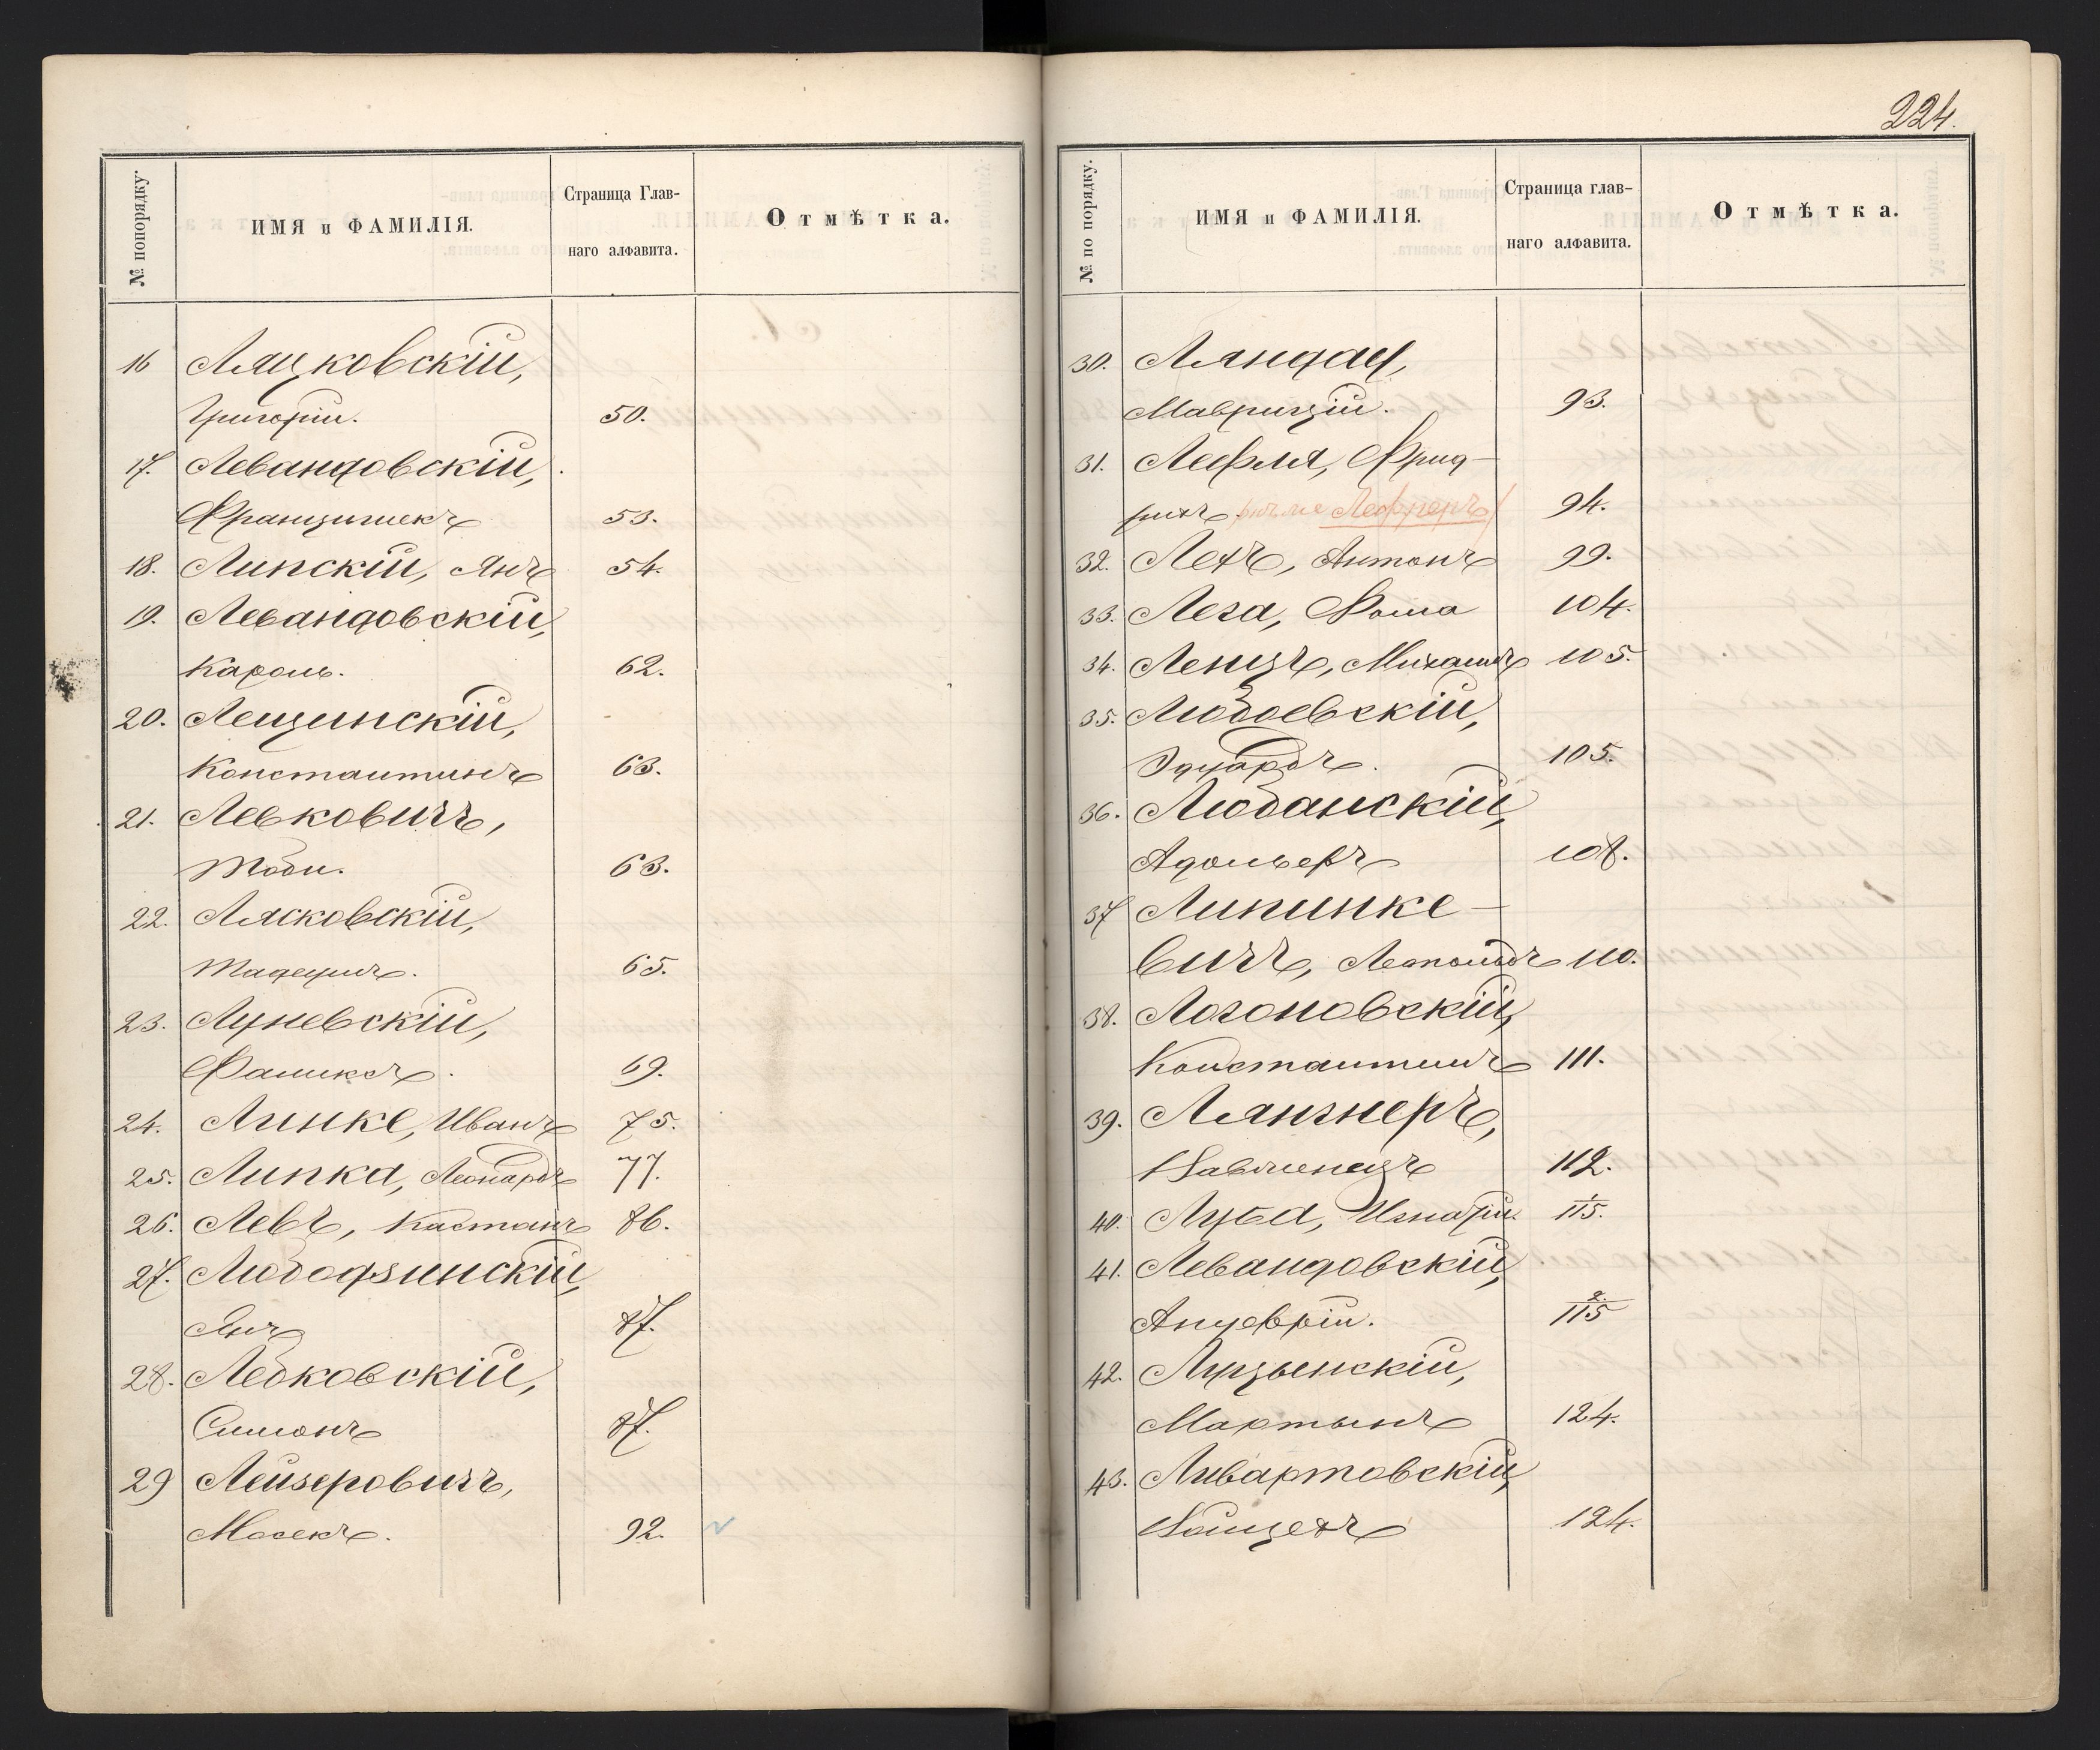 № попорядку.
ИМЯ и ФАМИЛІЯ.
Страница Глав-
наго алфавита.
Отмѣтка.
16 Ляцковскій,
Григорій. 50.
17. Левандовскій,
Францишекъ 53.
18. Липскій, Янъ 54.
19. Левандовскій,
Кароль. 62.
20. Лещинскій,
Константинъ 63.
21. Левковичъ,
Тоби. 63.
22. Лясковскій,
Тадеушъ. 65.
23. Луневскій,
Феликсъ. 69.
24. Линке, Иванъ 75.
25. Липка, Леонардъ 77.
26. Левъ, Кастанъ 86.
27. Любодзинскій,
Янъ 87.
28. Ледковскій,
Симонъ 87.
29 Лейзеровичъ,
Мосекъ. 92.
224.
№ по порядку.
ИМЯ и ФАМИЛІЯ.
Страница глав-
наго алфавита.
Отмѣтка.
30. Ляндау,
Маврицій. 93.
31. Лефля, Фрид-
рихъ. Лефлеръ 94.
32. Лехъ, Антонъ 99.
33. Лега, Фома 104.
34. Ленцъ, Михаилъ 105.
35. Любоевскій,
Эдуардъ. 105.
36. Любанскій,
Адольфъ 108.
37 Липинке-
вичъ, Леопольдъ 110.
38. Логоновскій,
Константинъ 111.
39. Лянгнеръ,
112.
40. Луба, Игнатій. 1/115.
41. Левандовскій,
2/115
42. Луцынскій,
Мартынъ 124.
43. Ливартовскій,
Войцехъ 124.